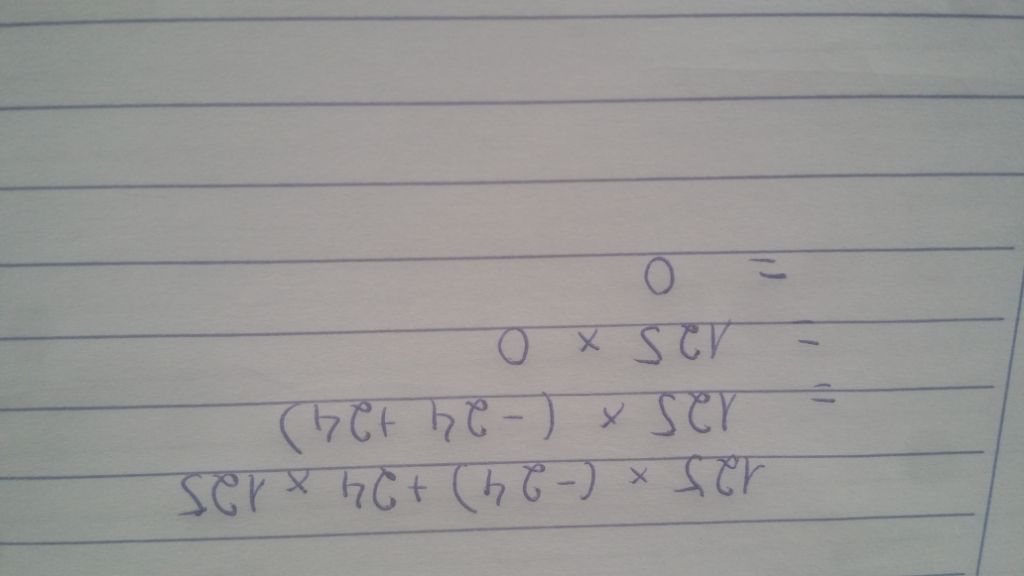 125 × (-24) + 24 × 125
= 125 × (-24 +24)
= 125 × 0
= 0